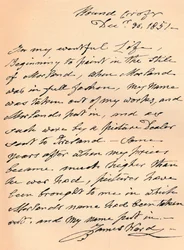 Round Croft
Dec 31. 1851 -
In my eventful Life,
Beginning to paint in the stile
of Morland, when Morland
was in full fashion, my Name
was taken out of my works, and
Morlands put in, and
each was by a picture Dealer
sent to Ireland - Some
years after when my prices
became much higher than
he was had. pictures have
been brought to me in which
Morlands name had been taken
out. and my name put in. -
James Ward